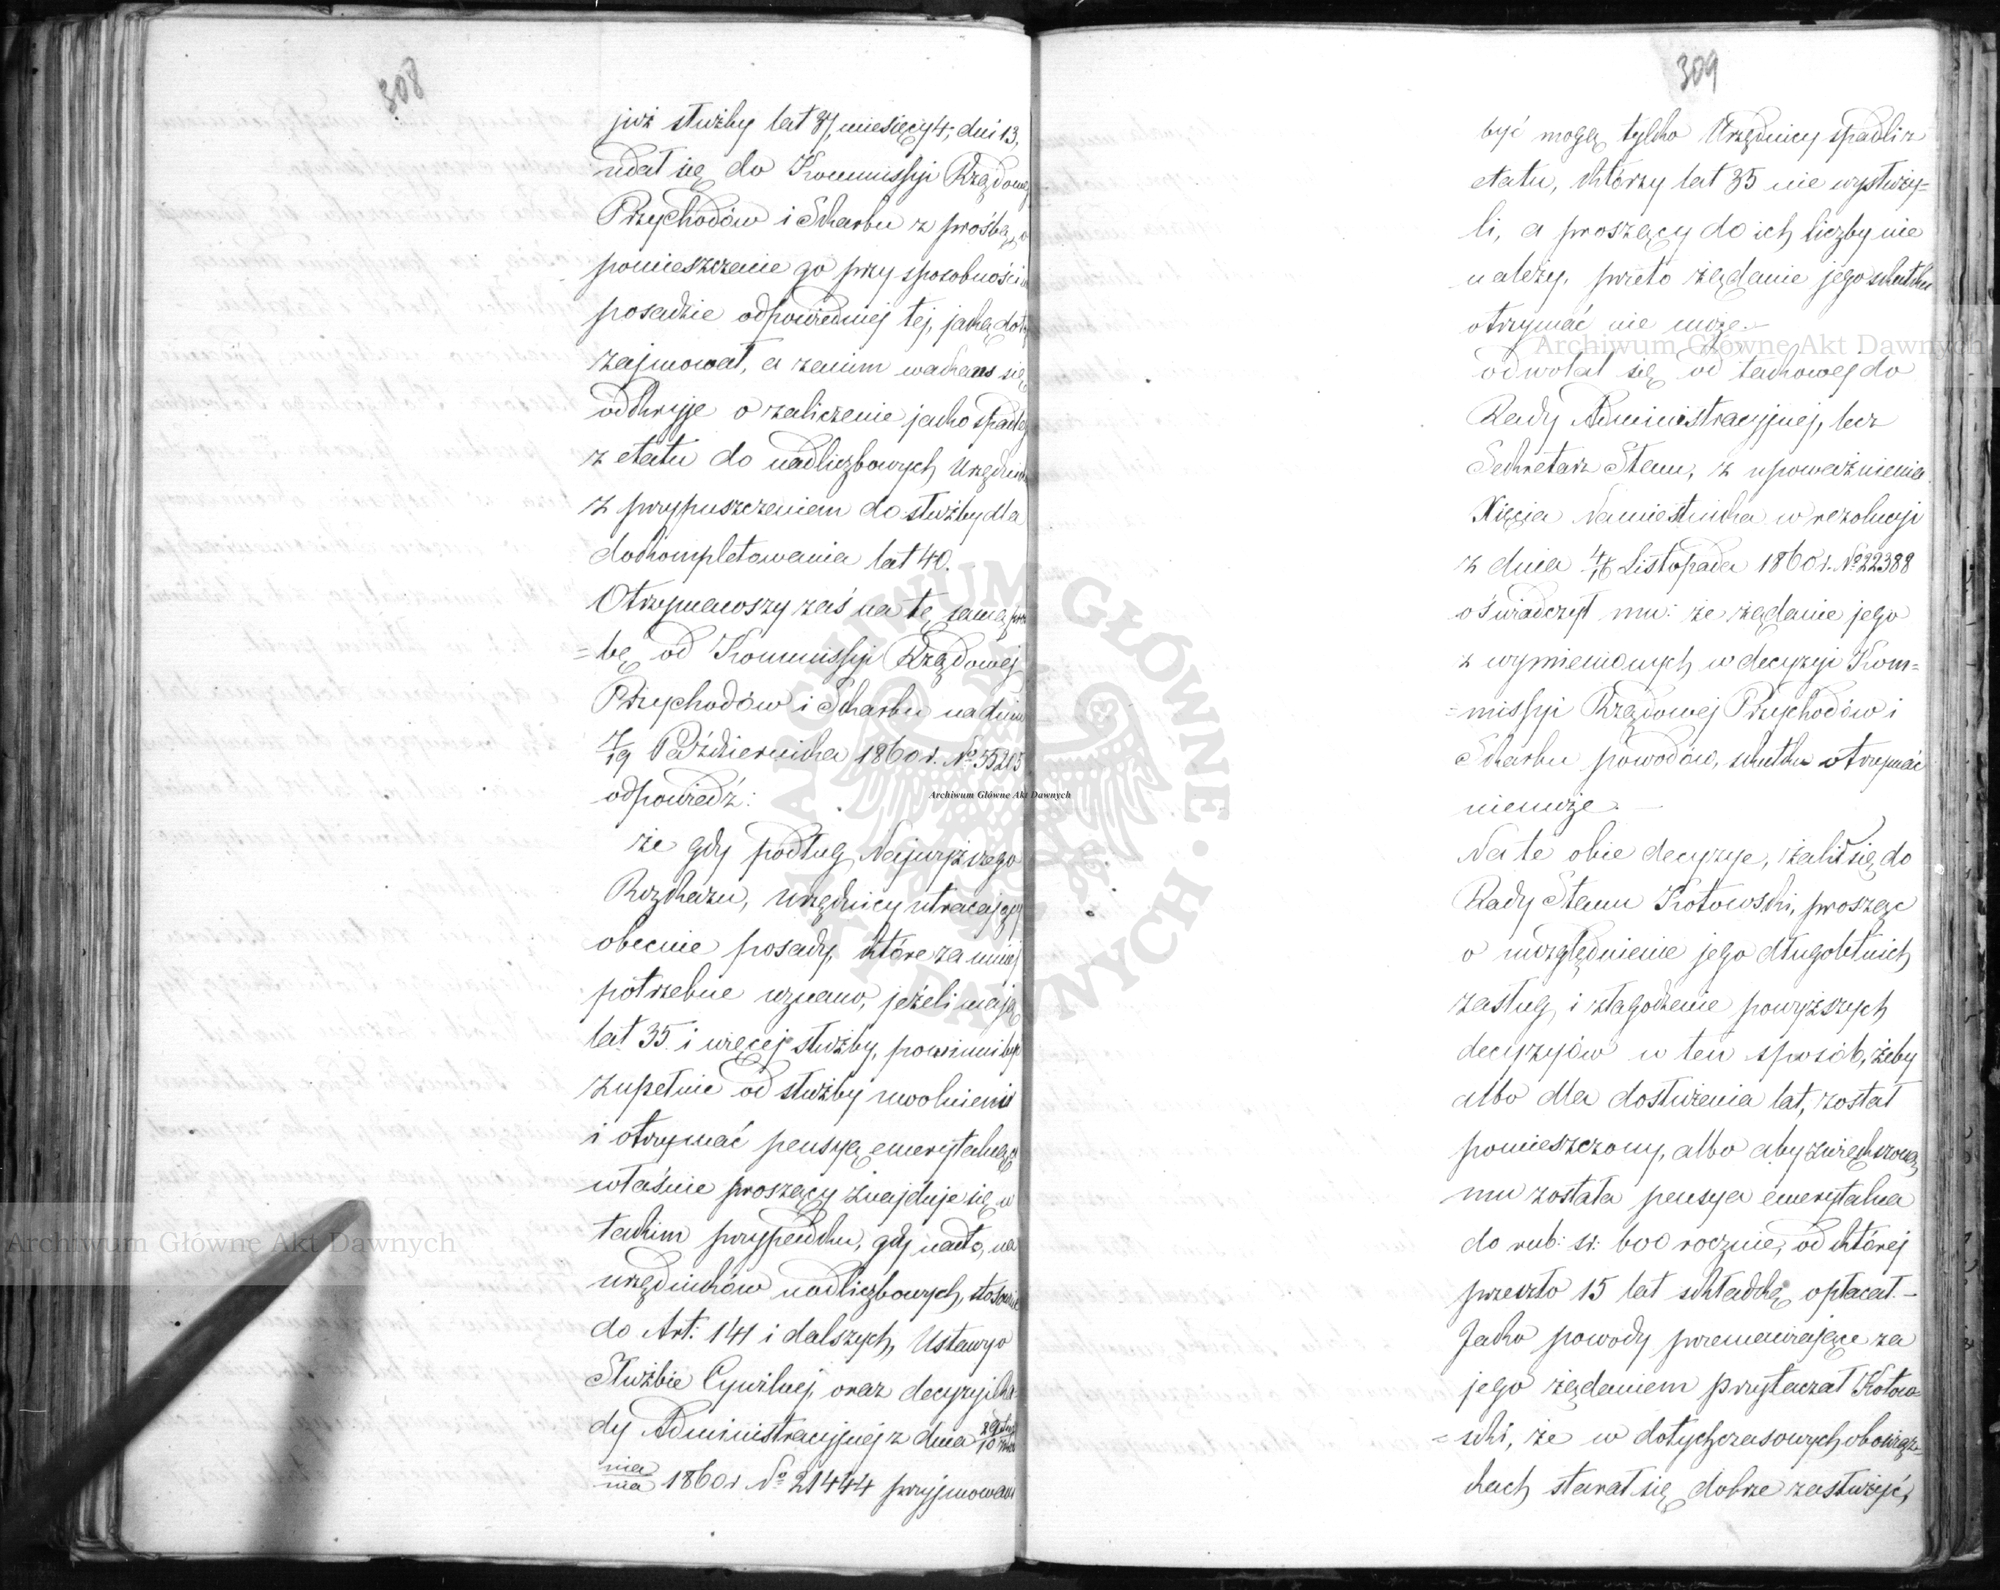 308
już służby lat 37, miesięcy 4, dni 13,
udał się do Kommissyi Rządowej
Przychodów i Skarbu z prośbą o
pomieszczenie go przy sposobności
posadzie odpowiedniej tej, jaką dotąd
zajmował, a zanim wakans się
odkryje o zaliczenie jako spadłego
z etatu do nadliczbowych Urzędników
z przypuszczeniem do służby dla
dokompletowania lat 40.
Otrzymawszy zaś na tę samą proś
=bę od Kommissyi Rządowej
Przychodów i Skarbu na dniu
7/19 Października 1860 r. No 55205
odpowiedź:
że gdy podług Najwyższego
Rozkazu, urzędnicy utracający
obecnie posady, które za mniej
potrzebne uznano, jeżeli mają
lat 35 i więcej służby, powinni być
zupełnie od służby uwolnieni
i otrzymać pensyą emerytalną a
właśnie proszący znajduje się w
takim przypadku, gdy nadto, na
urzędników nadliczbowych, stosownie
do Art: 141 i dalszych, Ustawy o
Służbie Cywilnej oraz decyzyi Ra
dy Administracyjnej z dnia
1860 r No 21444 przyjmowani
309
być mogą tylko Urzędnicy spadli z
etatu, którzy lat 35 nie wysłuży=
li, a proszący do ich liczby nie
należy, przeto żądanie jego skutku
otrzymać nie może.—
Odwołał się od takowej do
Rady Administracyjnej, lecz
Sekretarz Stanu, z upoważnienia
Xięcia Namiestnika w rezolucyi
z dnia 4/16 Listopada 1860 r. No 22388
oświadczył mu: że żądanie jego
z wymienionych w decyzyi Kom=
=missyi Rządowej Przychodów i
Skarbu powodów, skutku otrzymać
nie może. —
Na te obie decyzye, żalił się do
Rady Stanu Kotowski, prosząc
o uwzględnienie jego długoletnich
zasług, i złagodzenie powyższych
decyzyów w ten sposób, żeby
albo dla dosłużenia lat, został
pomieszczony, albo aby zwiększoną
mu została pensya emerytalna
do rub: sr: 600 rocznie, od której
przeszło 15 lat składkę opłacał.—
Jako powody przemawiające za
jego żądaniem przytaczał Kotow=
=ski, że w dotychczasowych obowiąz=
kach starał się dobrze zasłużyć,
Archiwum Główne Akt Dawnych
Archiwum Główne Akt Dawnych
Archiwum Główne Akt Dawnych
ARCHIWUM GŁÓWNE AKT DAWNYCH